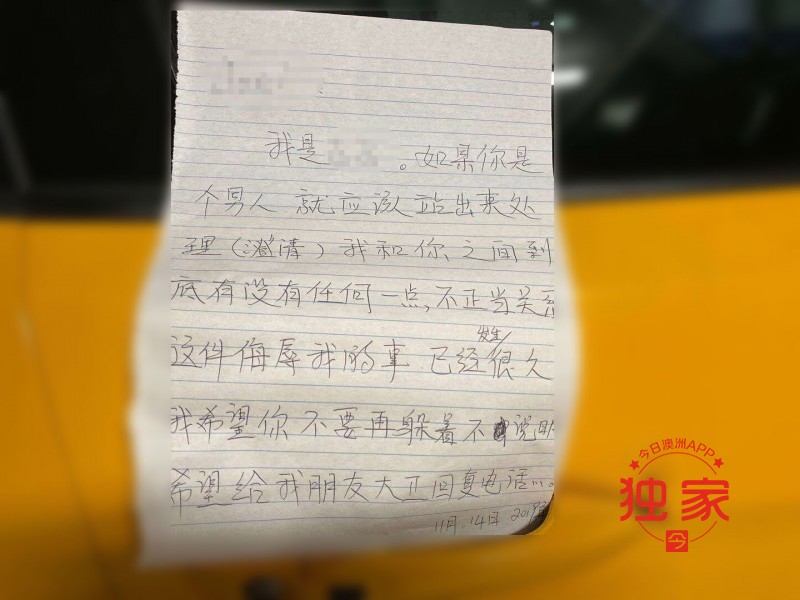 我是 。如果你是
个男人 就应该站出来处
理(澄清)我和你之间到
底有没有任何一点,不正当关系
这件侮辱我的事.已经发生很久
我希望你不要再躲着不说明
希望给我朋友大卫回复电话…。
11月.14日.2019
今日澳洲APP
独家
今